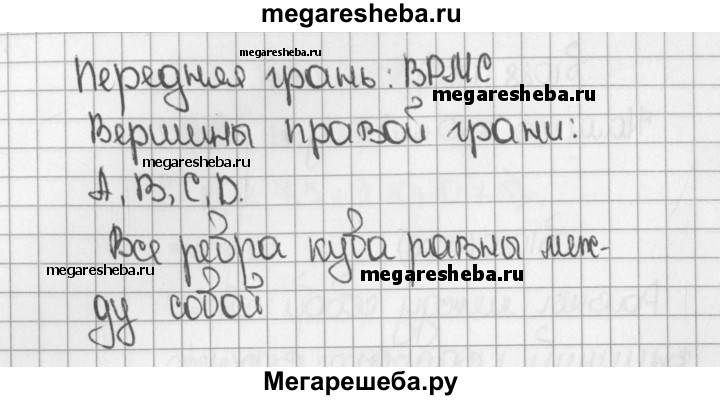 megaresheba.ru
megaresheba.ru
Передняя грань: ВРМС
megaresheba.ru
Вершины правой грани:
megaresheba.ru
А, В, С, D.
Все ребра куба равны меж-
megaresheba.ru
megaresheba.ru
ду собой
Мегарешеба.ру